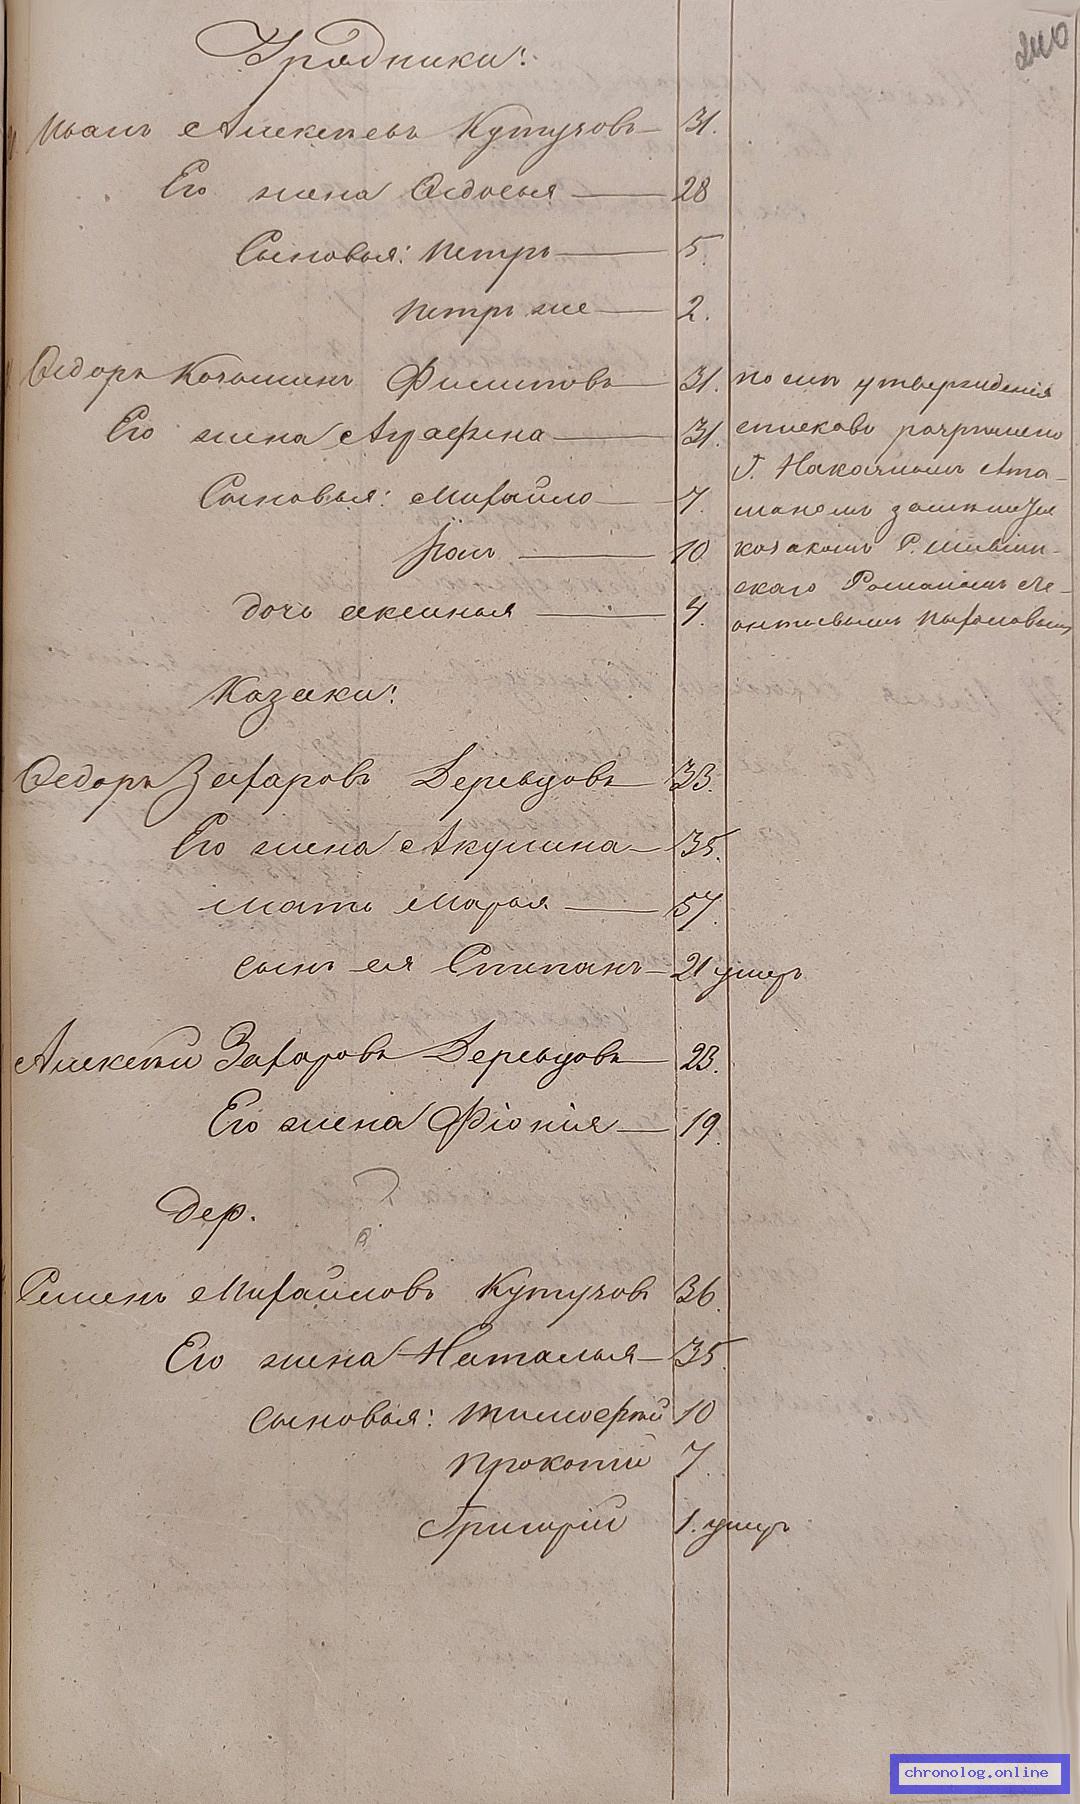 Урядники:
Иванъ Алексѣевъ Кутузовъ 31.
Его жена Ѳедосья 28
Сыновья: Петръ 5.
Петръ же 2.
Ѳедоръ Козьминъ Филиповъ 31. Послѣ утвержденія
Его жена Аграфена 31. списковъ разрѣшено
Г. Наказнымъ Ата-
Сыновья: Михайло 7. маномъ замѣнится
Иванъ 10 козакомъ
скаго Романомъ Ле-
дочь Аксинья 4. онтьевымъ Пахомовымъ
Козаки:
Ѳедоръ Захаровъ Деревцовъ 33.
Его жена Акулина 35.
Мать Марья 57.
сынъ ея Степанъ 21 умеръ
Алексѣй Захаровъ Деревцовъ 23.
Его жена Фіонія 19.
Дер.
Семенъ Михайловъ Кутузовъ 36.
Его жена Наталья 35.
Сыновья: Тимоѳей 10
Прокопій 7.
Григорій 1. умеръ
chronolog.online